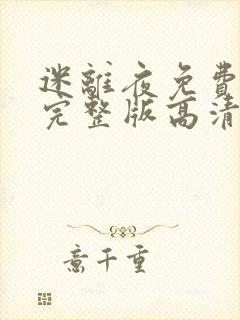 迷離夜免費
完整版高清
意千重